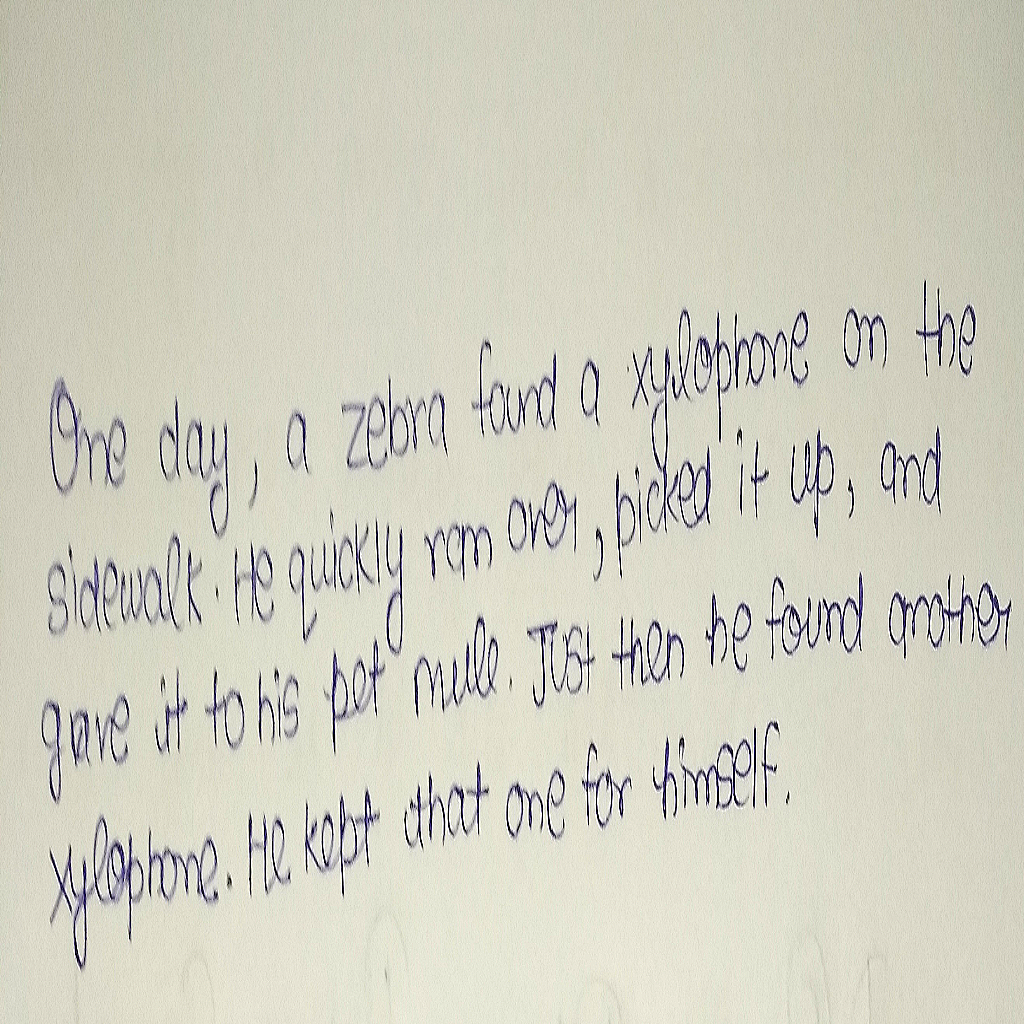 One day, a zebra found a xylophone on the
sidewalk. He quickly ran over, picked it up, and
gave it to his pet mule. Just then he found another
xylophone. He kept that one for himself.